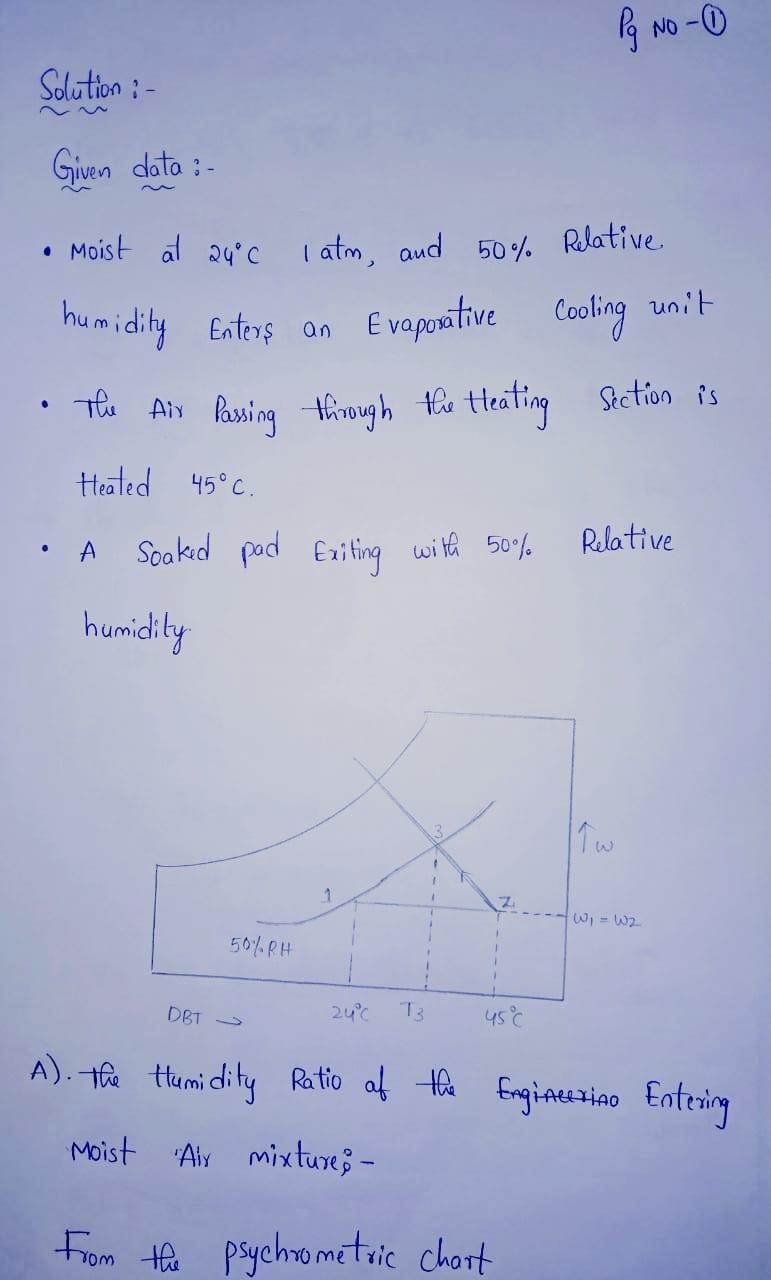 Pg NO - ①
Solution :-
Given data :-
• Moist at 24°C 1 atm, and 50% Relative
humidity Enters an Evaporative Cooling unit
• The Air Passing through the Heating Section is
Heated 45°C.
• A Soaked pad Exiting with 50% Relative
humidity
3
↑ω
1
2
ω₁ = ω₂
50% RH
DBT →
24°C T₃ 45°C
A). The Humidity Ratio of the Engineerino Entering
Moist Air mixture :-
From the psychrometric chart